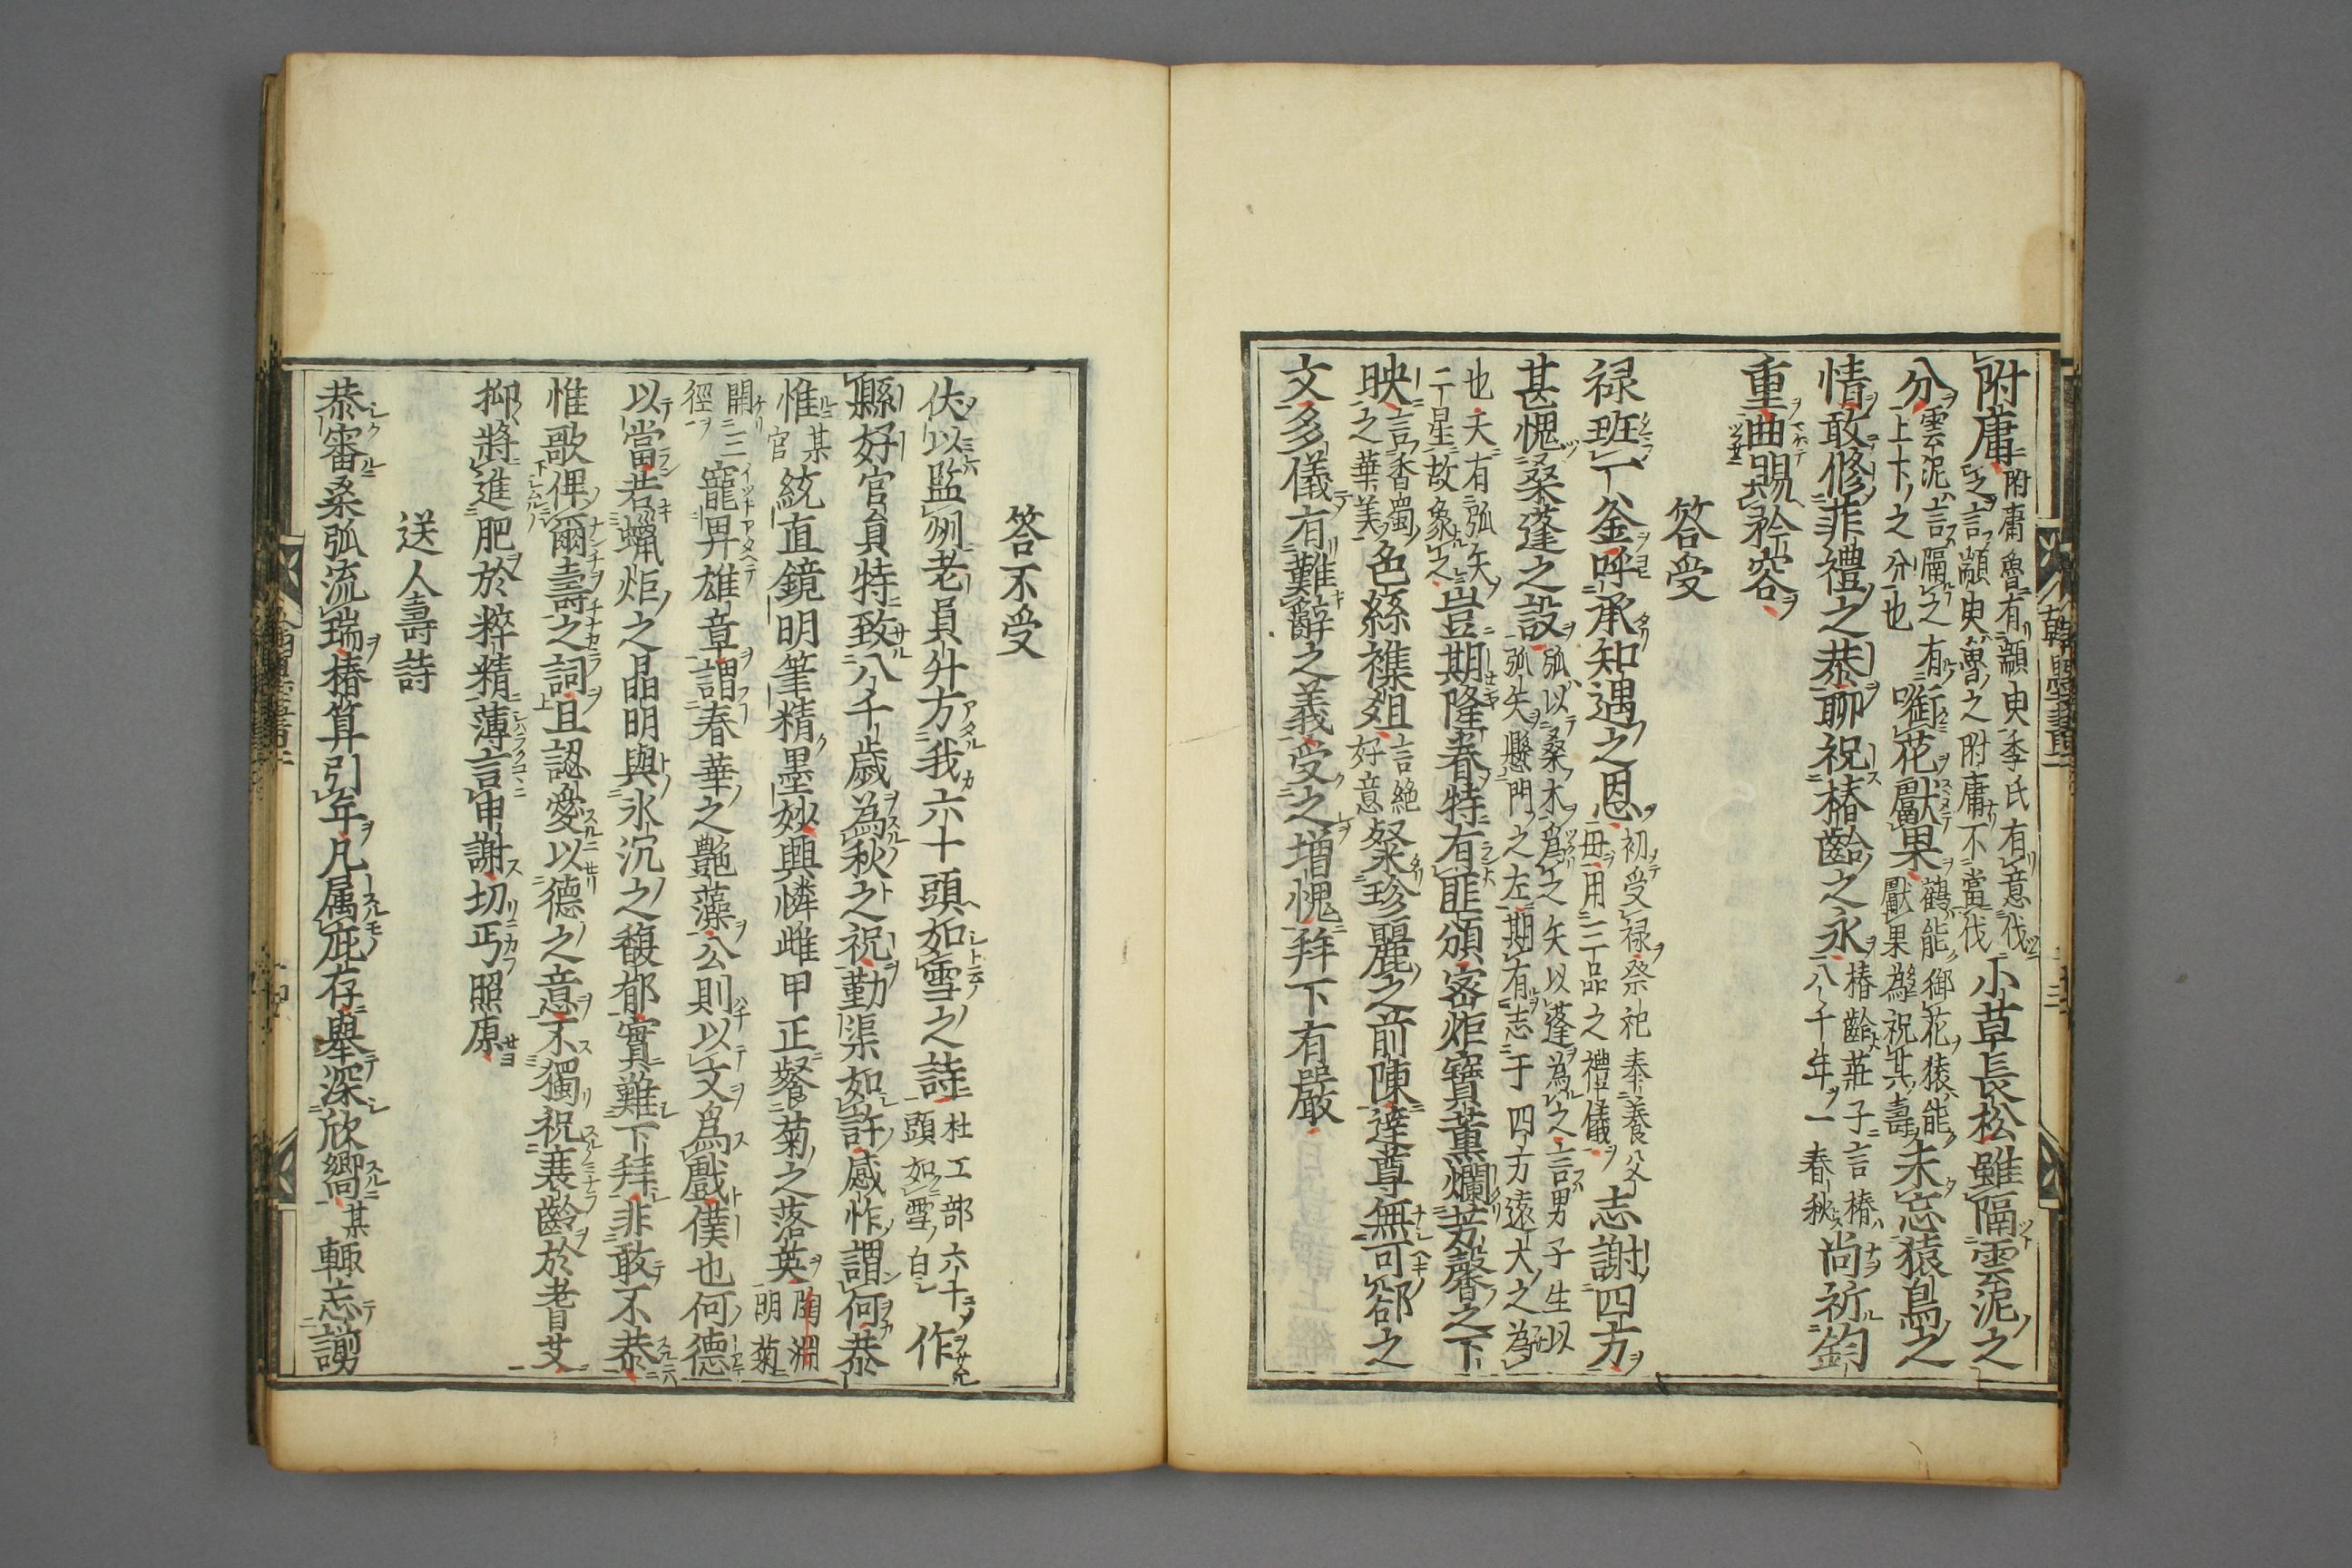 附庸附庸魯有顓臾季氏有意伐之言顓臾魯之附庸不當伐小草長松雖隔雲泥之
分雲泥言隔之有上下之分也啣花獻果鶴能御花猿能獻果為祝其壽未忘猿鳥之
情敢修菲禮之恭聊祝椿齡之永椿齡莊子言椿八千年一春秋尚祈鈞
重曲賜衿容
答受
祿班一釜呼承知遇之恩初受祿祭祀奉養父母用三品之禮儀志謝四方
甚愧桑蓬之設弧以桑木為之矢以蓬為之言男子生以弧矢懸門之左期有志于四方遠大之為
也天有弧矢二星故象之豈期隆眷特有匪頒密炬寶薰爛芳馨之下
映言香蜀之華美色絲襍俎言絶好意粲珍麗之前陳達尊無可郤之
文多儀有難辭之義受之增愧拜下有嚴
答不受
伏以監州老員升方我六十頭如雪之詩杜工部六十頭如雪白作
縣好官員特致八千歲為秋之祝勤渠如許感怍謂何恭
惟某官統直鏡明筆精墨妙興憐雌甲正餐菊之落英陶淵明菊
開三徑寵畀雄章謂春華之艷藻公則以文為戲僕也何德
以當若蠟炬之晶明與氷沉之馥郁實難下拜非敢不恭
惟歌俾爾壽之詞且認愛以德之意不獨祝衰齡於耆艾
抑將進肥於粹精薄言申謝切丐照原
送人壽詩
恭審桑弧流瑞椿算引年凡属庇存舉深欣嚮某輒忘謭